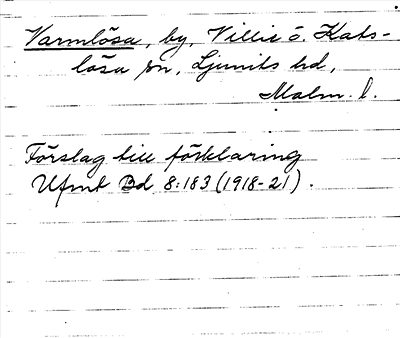 Varmlösa, by, Villie o. Kats-
lösa sn, Ljunits hd,
Malm. l.
Förslag till förklaring
Ufmt Bd 8:183 (1918-21).